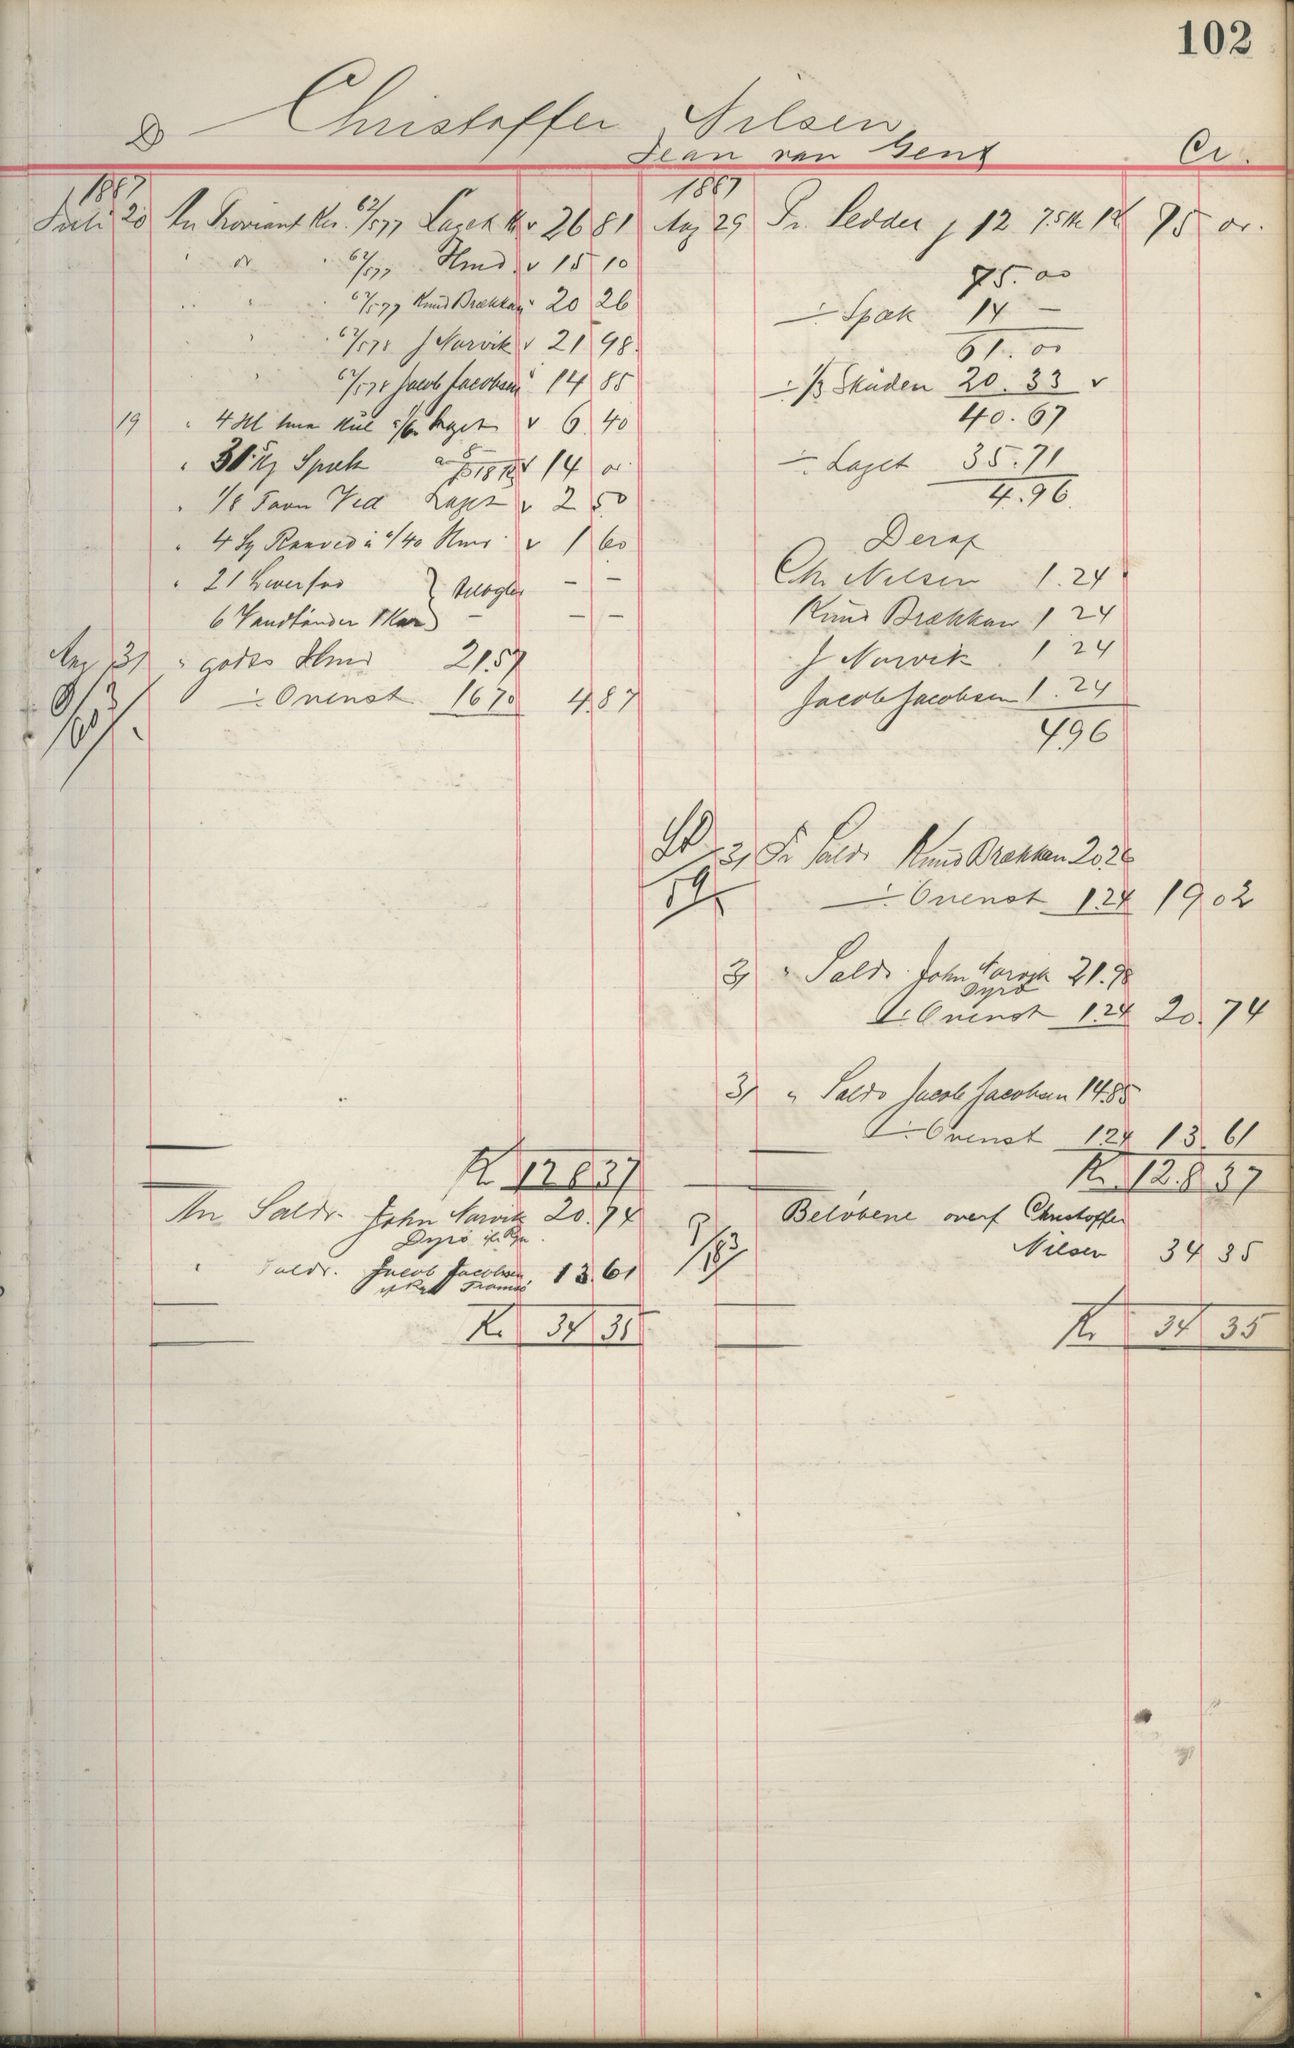 102
D Christoffer Nilsen Cr.
Jean van Gent
1887
Juli 20 An Proviant Kr. 62/577 Laget Kr v 26 81
" do " 62/577 Hmd. v 15 10
" " " 62/577 Knud Brækkan v 20 26
" 62/578 J Norvik v 21 98
" 62/578 Jacob Jacobsen v 14 85
19 " 4 Hl Kul Laget v 6 40
" 31.5 Kg Spæk v 14 00
" 1/8 Favn Ved Laget v 2 50
" 4 Hmd v 1 60
" 21 Leverfad — —
6 Vandtønder 1 Kar — —
Aug 31 " godts Hmd 21.57
÷ Ovenst 16 70 4.87
Kr 128 37
An Saldo John Norvik 20.74
Dyrø
" Saldo Jacob Jacobsen 13.61
Tromsø
Kr 34 35
1887
Aug 29 Pr. Sedder 12 75 00
75.00
÷ Spæk 14 —
61.00
÷ 1/3 Skuden 20.33 v
40.67
÷ Laget 35.71
4.96
Deraf
Chr Nilsen 1.24
Knud Brækkan 1 24
J Norvik 1 24
Jacob Jacobsen 1.24
4.96
31 Pr Saldo Knud Brækkan 20.26
÷ Ovenst 1.24 19 02
31 " Saldo John Norvik 21.98
Dyrø
÷ Ovenst 1.24 20.74
31 " Saldo Jacob Jacobsen 14.85
÷ Ovenst 1.24 13.61
Kr. 128 37
Beløbene overf Christoffer
Nilsen 34 35
Kr 34 35